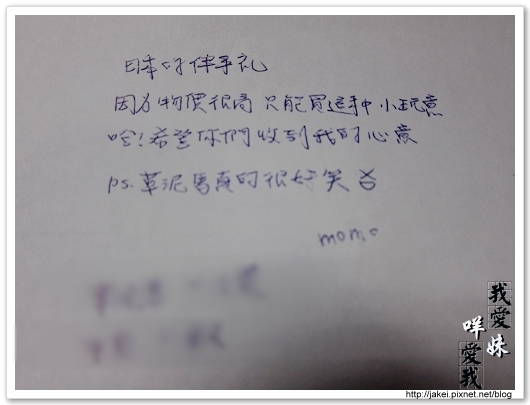 日本的伴手礼
因為物價很高 只能買這种小玩意
哈!希望你們收到我的心意
ps.草泥馬真的很好笑
momo
我愛妹
咩愛我
http://jakei.pixnet.net/blog